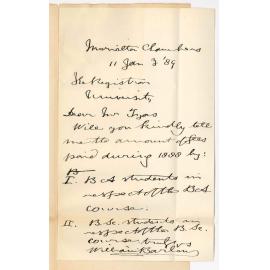 Marialta Chambers
11 Jan 3 '89
The Registrar
University
Dear Mr Tyas
Will you kindly tell
me the amount of fees
paid during 1888 by:
I. BA students in
respect of the BA
course.
II. B.Sc. students in
respect of the B.Sc.
course
William Barlow